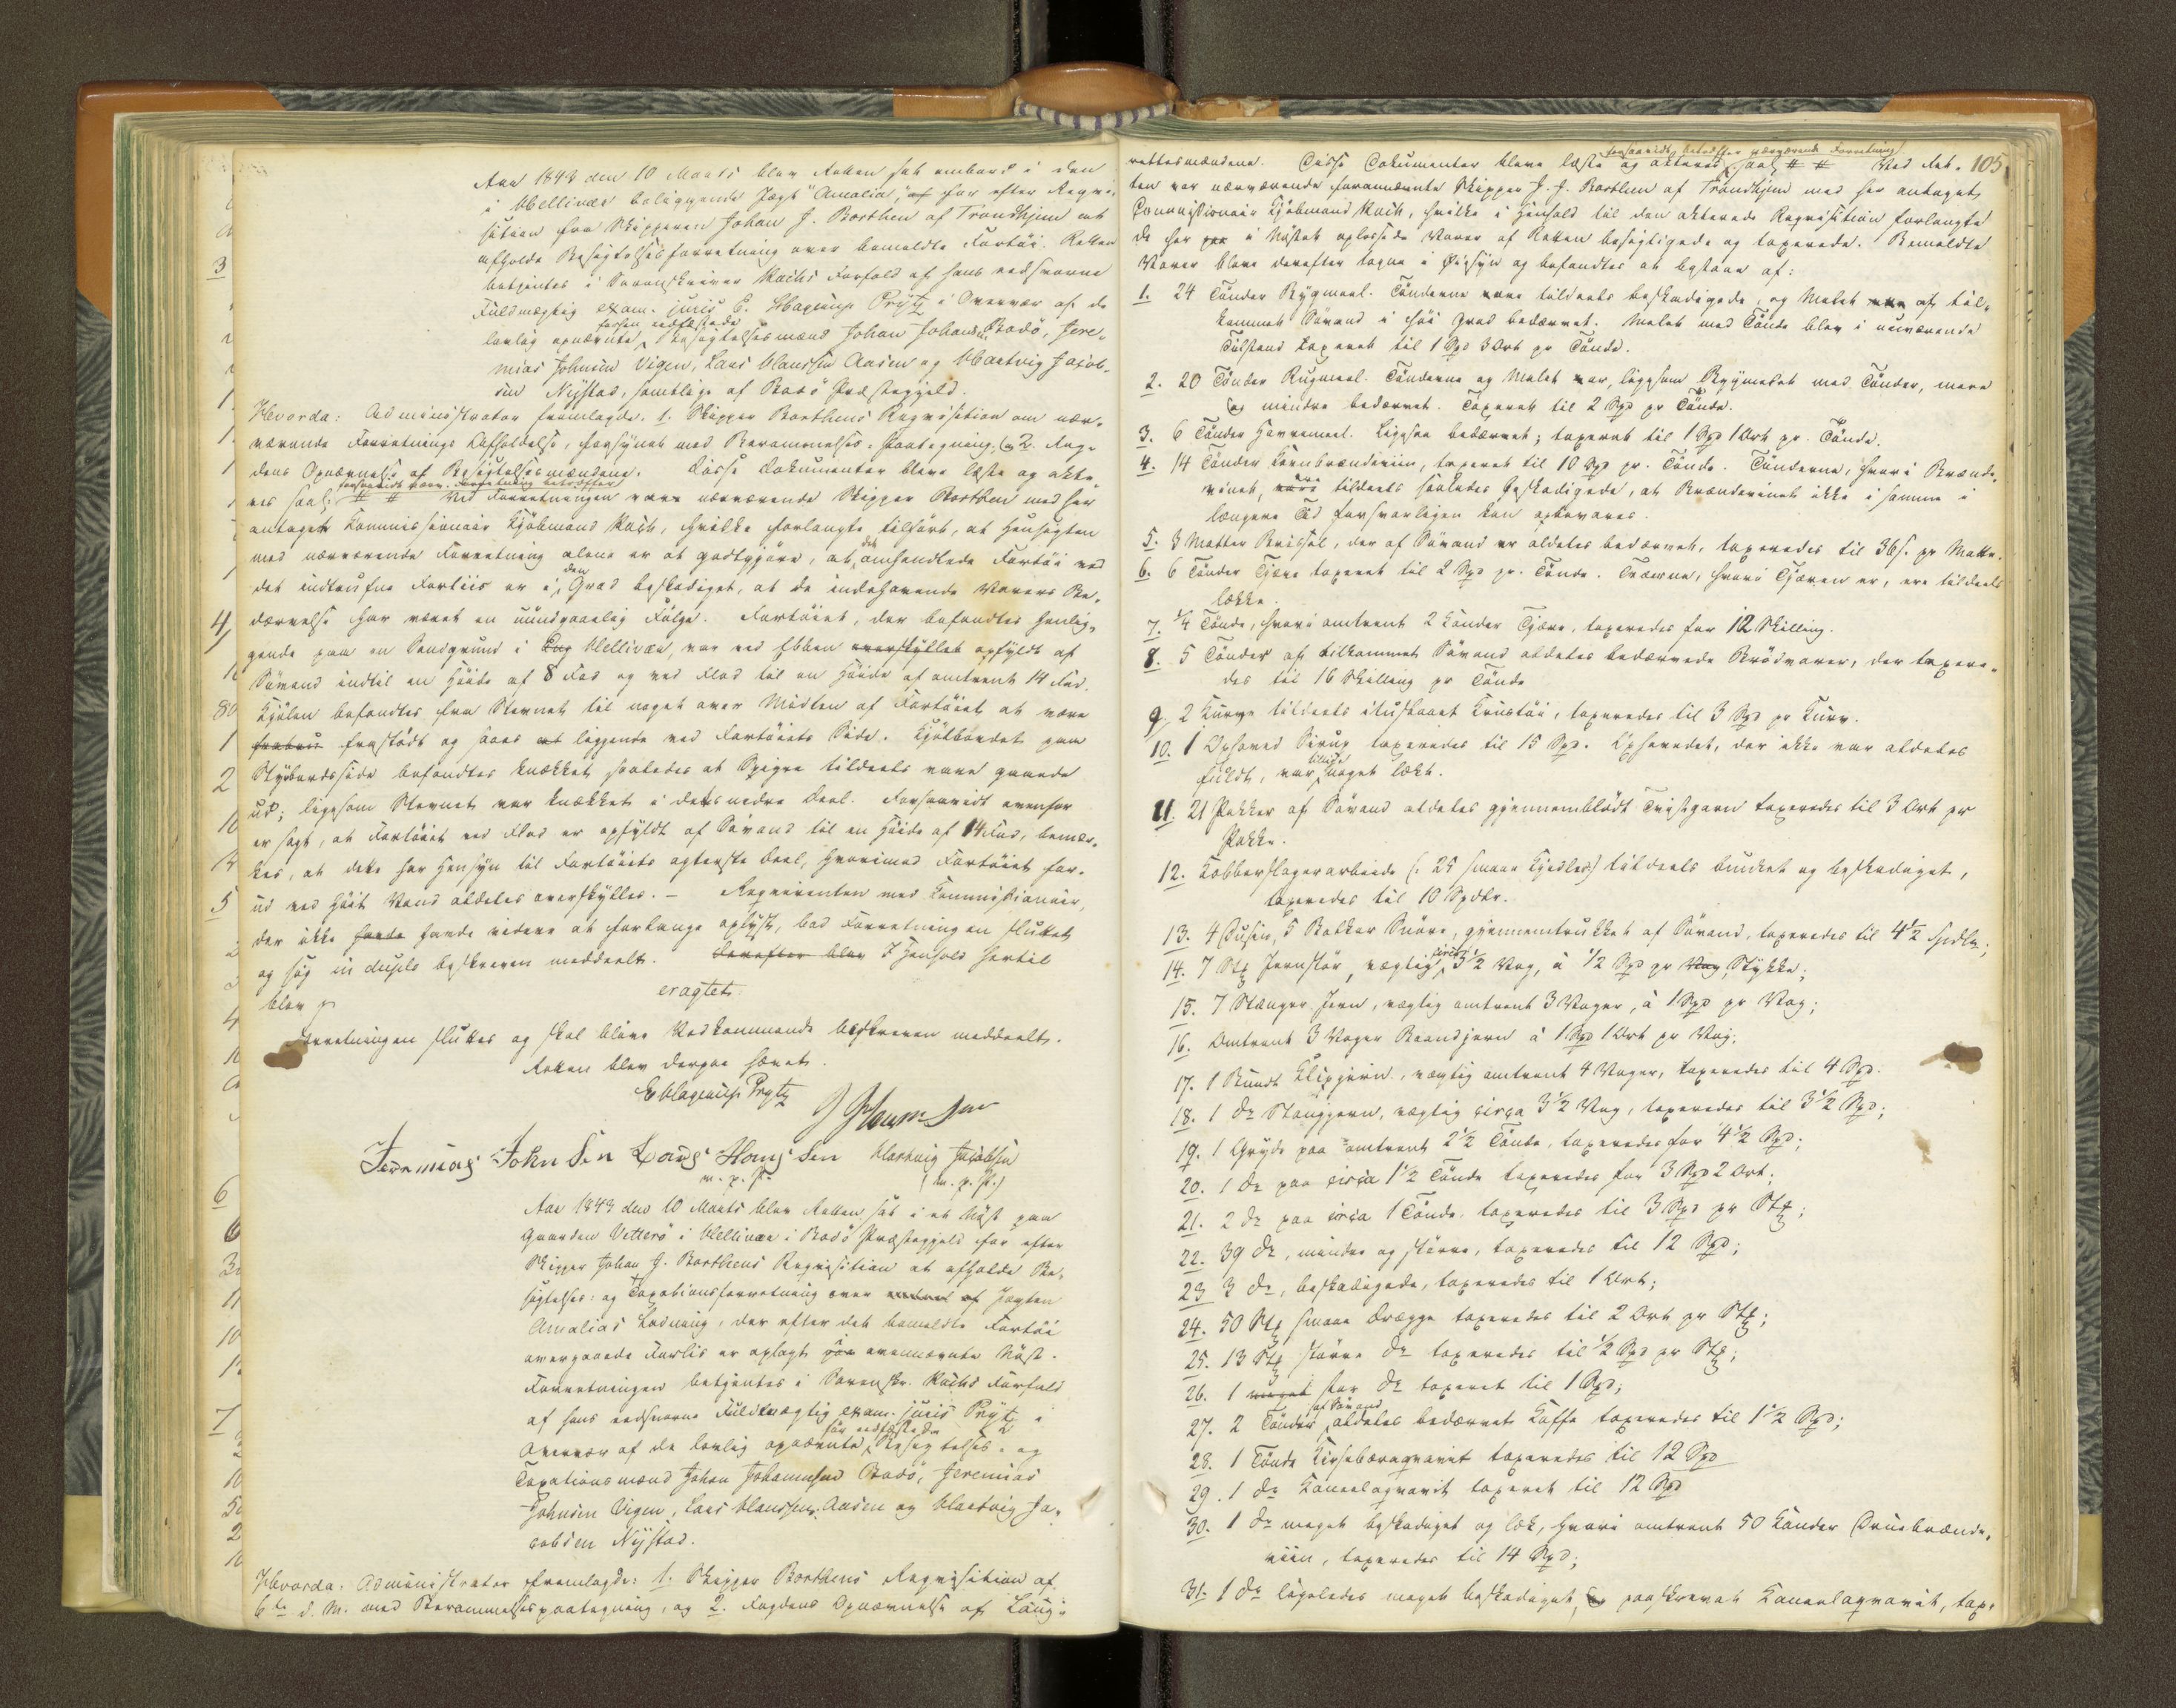 Aar 1843 den 10 Marts blev Retten sat ombord i den
i Hellivær beliggende Jægt "Amalia", for efter Reqvi-
sition fra Skipperen Johan J. Borthen af Trondhjem at
afholde Besigtelsesforretning over bemeldte Fartöi. Retten
betjentes i Sorenskriver Kochs Forfald af hans edsvorne
Fuldmægtig exam. juris E. Hagerup Prytz i Overvær af de
forhen edfæstede
lovlig opnævnte Besigtelsesmænd Johan Johans. Bodö, Jere-
mias Johnsen Vigen, Lars Hanssen Aasen og Hartvig Jakob-
sen Nystad, samtlige af Bodö Præstegjeld.
Hvorda: Administrator fremlagde. 1. Skipper Borthens Reqvisition om nær-
værende Forretnings Afholdelse, forsynet med Berammelses-Paategning, 2. Fog-
dens Opnævnelse af Besigtelsesmændene. Disse Dokumenter bleve læste og akte-
forsaavidt nærv. Forretning betræffer
res saal: # # Ved Forretningen vare nærværende Skipper Borthen med her
antaget Kommissionair Kjöbmand Koch, hvilke forlangte tilfört, at Hensigten
med nærværende Forretning alene er at godtgjöre, at det omhandlede Fartöi ved
det indtrufne Forliis er i den Grad beskadiget, at de indehavende Varers Be-
dærvelse har været en uundgaaelig Fölge. Fartöiet, der befandtes henlig-
gende paa en Sandgrund i Hellivær, var ved Ebben overskyllet opfyldt af
Sövand indtil en Höide af 8 Fod og ved Flod til en Höide af omtrent 14 Fod.
Kjölen befandtes fra Stevnet til noget over Midten af Fartöiet at være
frastödt og saaes at liggende ved Fartöiets Side. Kjölbordet paa
Styrbordsside befandtes knækket saaledes at Spigre tildeels vare gaaede
ud; ligesom Stevnet var knækket i dets nedre Deel. Forsaavidt ovenfor
er sagt, at Fartöiet ved Flod er opfyldt af Sövand til en Höide af 14 Fod, bemær-
kes, at dette har Hensyn til Fartöiets agterste Deel, hvorimod Fartöiet for-
ud ved Höit Vand aldeles overskylles. – Reqvirenten med Kommissionair,
der ikke havde videre at forlange oplyst, bad Forretningen sluttet
og sig in duplo beskreven meddeelt. Derefter blev I Henhold hertil
blev
eragtet
Forretningen sluttes og skal blive Vedkommende beskreven meddeelt.
Retten blev derpaa hævet.
E Hagerup Prytz
Jeremias Johnsen Lars Hans sen Hartvig Jacobsen
m. p. P. (m. p. P.)
Aar 1843 den 10 Marts blev Retten sat i et Nöst paa
Gaarden Vetterö i Hellivær i Bodö Præstegjeld for efter
Skipper Johan J. Borthens Reqvisition at afholde Be-
sigtelses- og Taxationsforretning over Jægten
Amalias Ladning, der efter det bemeldte Fartöi
overgaaede Forlis er oplagt i ovennævnte Nöst.
Forretningen betjentes i Sorenskr. Kochs Forfald
af hans edsvorne Fuldmægtig exam. juris Prytz i
för edfæstede
Overvær af de lovlig opnævnte Besigtelses- og
Taxationsmænd Johan Johannesen Bodö, Jeremias
Johnsen Vigen, Lars Hanssen Aasen og Hartvig Ja-
cobsen Nystad.
Hvorda: Administrator fremlagde: 1. Skipper Borthens Reqvisition af
6te d. M. med Berammelsespaategning, og 2. Fogdens Opnævnelse af Laug-
105
forsaavidt betræffer nærværende Forretning
rettesmændene. Disse Dokumenter bleve læste og akteres saal # # Ved Ret-
ten var nærværende fornævnte Skipper J. J. Borthen af Trondhjem med her antaget
Commissionair Kjöbmand Koch, hvilke i Henhold til den akterede Reqvisition forlangte
de her i Nöstet oplossede Varer af Retten besigtigede og taxerede. Bemeldte
Varer bleve derefter tagne i Öiesyn og befandtes at bestaae af:
1. 24 Tönder Rygmeel. Tönderne vare tildeels beskadigede, og Melet af til-
kommet Sövand i höi Grad bedærvet. Melet med Tönde blev i nærværende
Tilstand taxeret til 1 Spd 3 Ort pr Tönde.
2. 20 Tönder Rugmeel. Tönderne og Melet var, ligesom Bygmelet med Tönder, mere
og mindre bedærvet. Taxeret til 2 Spd pr Tönde.
3. 6 Tönder Havremeel. Ligesaa bedærvet; taxeret til 1 Spd 1 Ort pr. Tönde.
4. 14 Tönder Kornbrændeviin, taxeret til 10 Spd pr. Tönde. Tönderne, hvori Brænde-
vinet, ere tildeels saaledes beskadigede, at Brændevinet ikke i samme i
længere Tid forsvarligen kan opbevares.
5. 3 Matter Brissel, der af Sövand er aldeles bedærvet, taxeredes til 36 s. pr Matte.
6. 6 Tönder Tjære taxeret til 2 Spd pr. Tönde. Træerne, hvori Tjæren er, ere tildeels
lække.
7. 1/4 Tönde, hvori omtrent 2 Kander Tjære, taxeredes for 12 Skilling.
8. 5 Tönder af tilkommet Sövand aldeles bedærvede Brödvarer, der taxere-
des til 16 Skilling pr Tönde
9. 2 Kurve tildeels itustaaet Krustöi, taxeredes til 3 Spd pr Kurv.
10. 1 Oxhoved Sirup taxeredes til 15 Spd. Oxhovedet, der ikke var aldeles
fuldt, var tillige noget lækt.
11. 21 Pakker af Sövand aldeles gjennemblödt Tvistgarn taxeredes til 3 Ort pr
Pakke.
12. Kobberslagerarbeide (: 25 smaae Kjedler) tildeels bucket og beskadiget,
taxeredes til 10 Spdlr.
13. 4 Dusin, 5 Bakker Snöre, gjennemtrukket af Sövand, taxeredes til 4 1/2 Spdlr;
14. 7 Stk Jernstör, vægtig circa 3 1/2 Vog, à 1/2 Spd pr Stykke;
15. 7 Stænger Jern, vægtig omtrent 3 Voger, à 1 Spd pr Vog;
16. Omtrent 3 Voger Baandjern à 1 Spd 1 Ort pr Vog;
17. 1 Bundt Klipjern, vægtig omtrent 4 Voger, taxeredes til 4 Spd.
18. 1 do Stangjern, vægtig circa 3 1/2 Vog, taxeredes til 3 1/2 Spd;
19. 1 Gryde paa omtrent 2 1/2 Tönde, taxeredes for 4 1/2 Spd;
20. 1 do paa circa 1 1/2 Tönde taxeredes for 3 Spd 2 Ort;
21. 2 do paa circa 1 Tönde, taxeredes til 3 Spd pr Stk;
22. 39 do, mindre og större, taxeredes til 12 Spd;
23 3 do, beskadigede, taxeredes til 1 Ort;
24. 50 Stk smaae Drægge taxeredes til 2 Ort pr Stk;
25. 13 Stk större do taxeredes til 1/2 Spd pr Stk;
26. 1 meget stor do taxeret til 1 Spd;
27. 2 Tönder af Sövand aldeles bedærvet Kaffe taxeredes til 1 1/2 Spd;
28. 1 Tönde Kirsebæraqvavit taxeredes til 12 Spd
29. 1 do Kaneelaqvavit taxeret til 12 Spd
30. 1 do meget beskadiget og læk, hvori omtrent 50 Kander Druebrænde-
viin, taxeredes til 14 Spd;
31. 1 do ligeledes meget beskadiget, paaskrevet Kaneelaqvavit, tax-